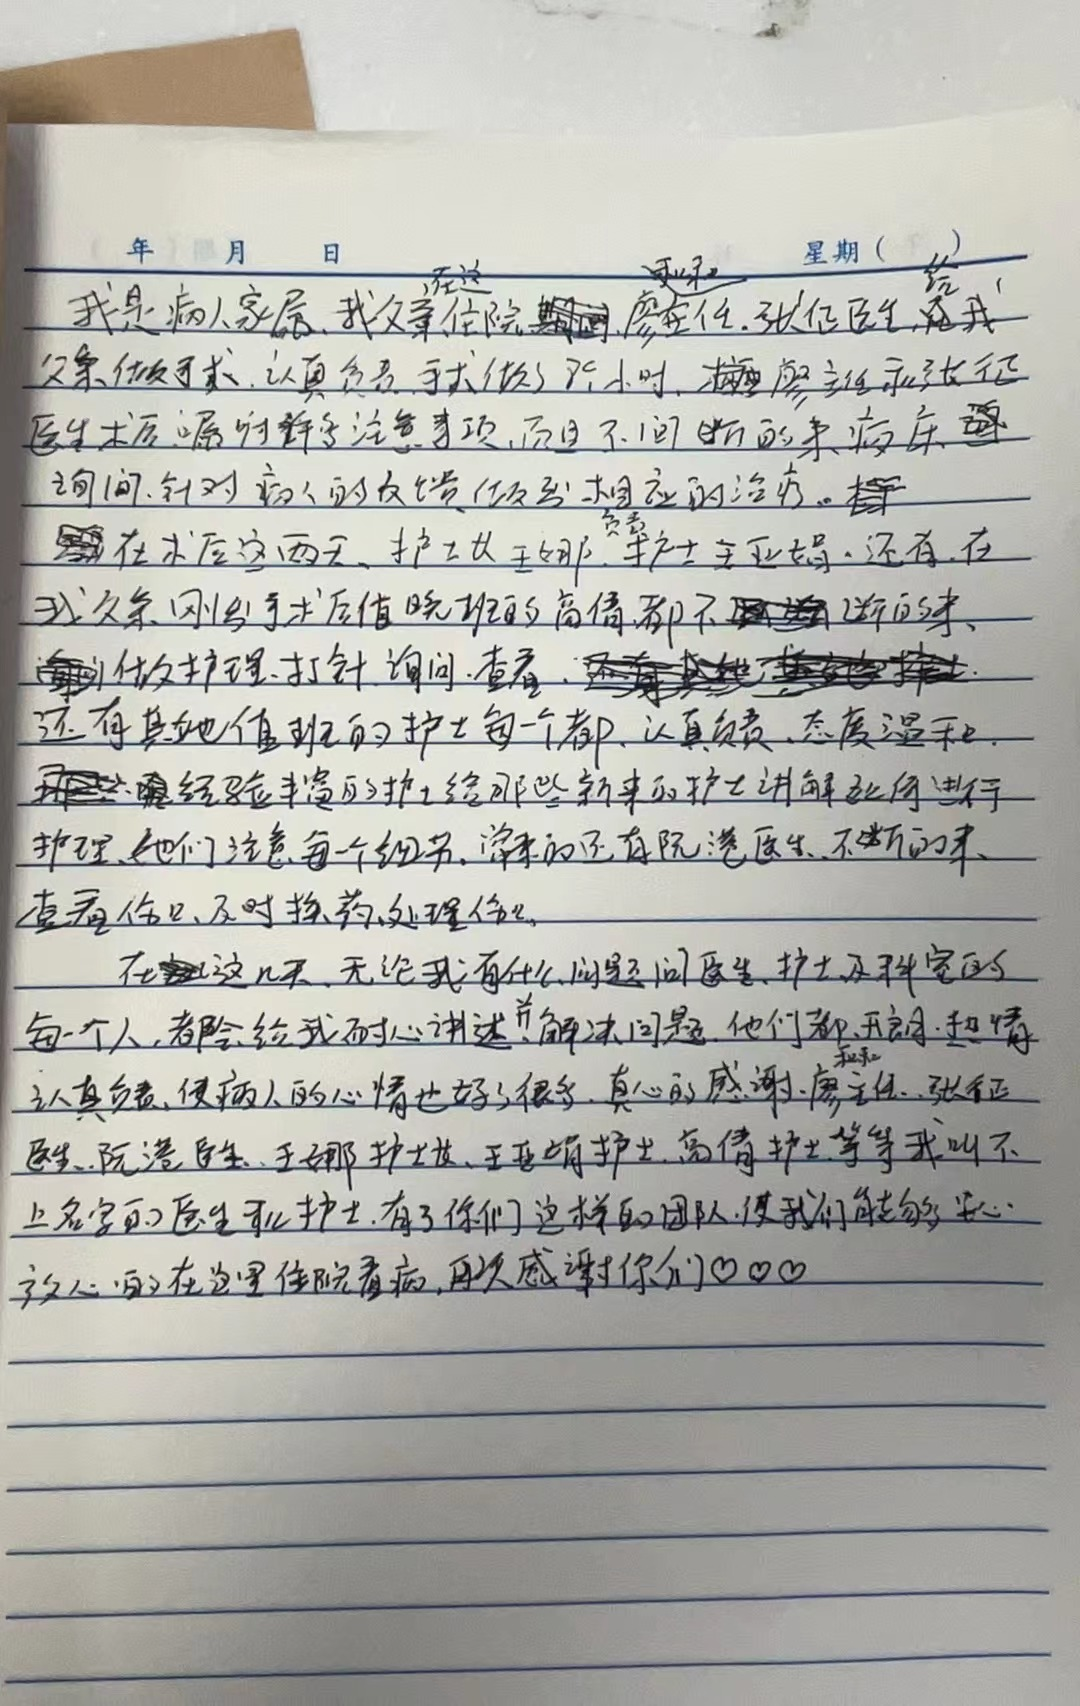 年 月 日 星期( )
我是病人家属、我父亲在这住院 廖主任.张征医生给我
父亲做手术、认真负责 手术做了 小时、廖主任和张征
医生术后嘱咐许多注意事项、而且不间断的来病床
询问、针对病人的反馈做到相应的治疗。
在术后这两天、护士长王娜、负责护士王亚娟.还有.在
我父亲刚出手术后值晚班的高倩、都不断的来、
做护理、打针.询问.查看、
还有其他值班的护士每一个都、认真负责、态度温和、
经验丰富的护士给那些新来的护士讲解如何进行
护理、她们注意每一个细节、 的还有阮港医生、不断的来、
查看伤口、及时换药、处理伤口。
在这几天、无论我有什么问题问医生、护士及科室的
每一个人、都会给我耐心讲述并解决问题、他们都开朗.热情
认真负责、使病人的心情也好了很多、真心的感谢.廖主任、张征
医生、阮港医生、王娜护士长、王亚娟护士、高倩护士等等我叫不
上名字的医生和护士、有了你们这样的团队.使我们能够安心
放心的在这里住院看病、再次感谢你们♡♡♡